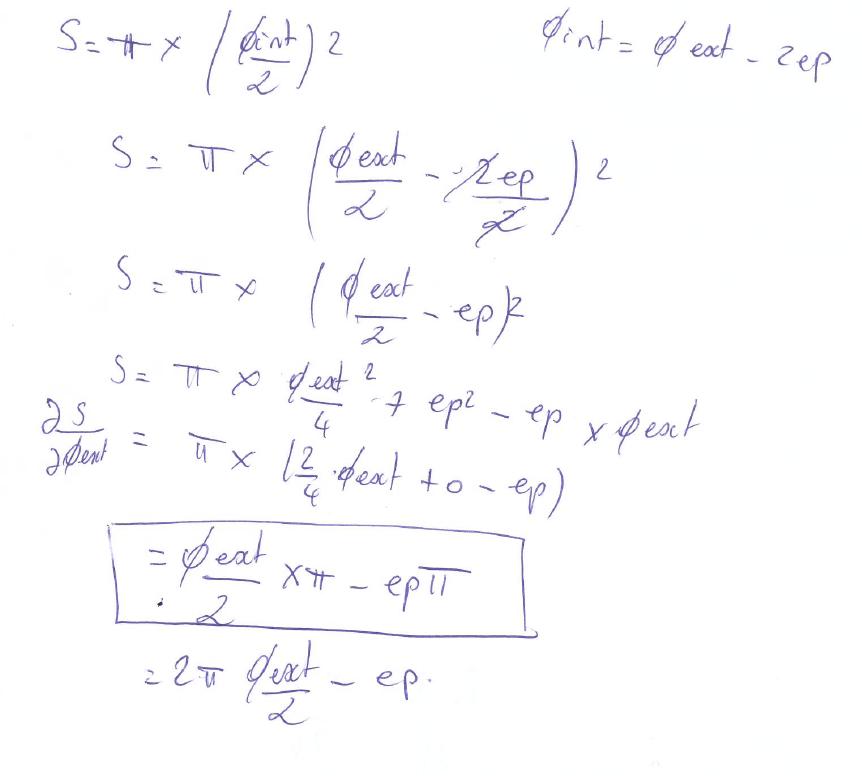 S = π × (φint/2)2    φint = φ ext - 2ep
S = π × (φext/2 - 2ep/2)2
S = π × (φext/2 - ep)2
S = π × φext²/4 + ep² - ep × φext
∂S/∂φext = π × (2/4 · φext + 0 - ep)
= φext/2 × π - ep π
= 2π φext/2 - ep.